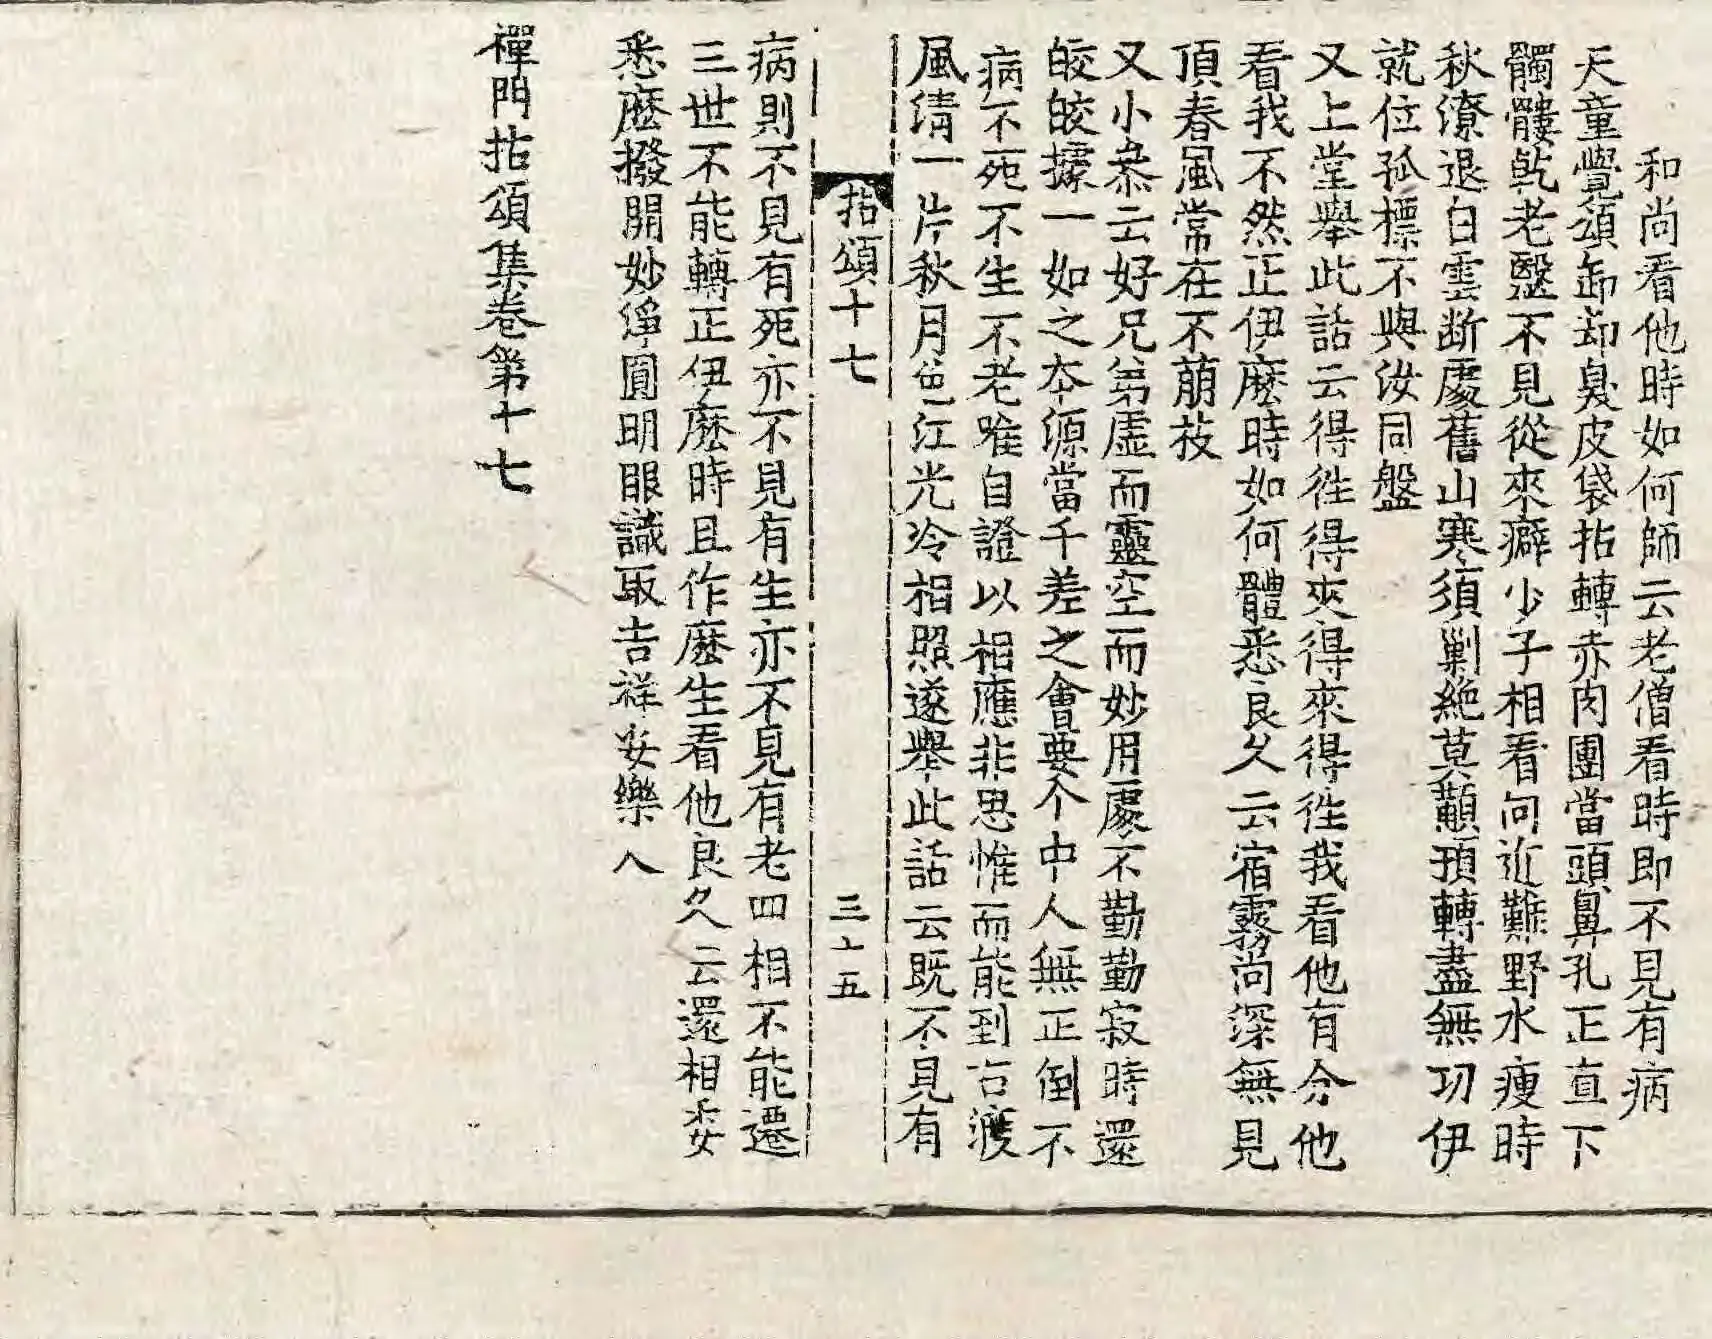 和尚看他時如何師云老僧看時即不見有病
天童覺頌卸却臭皮袋拈轉赤肉團當頭鼻孔正直下
髑髏乹老毉不見從來癖少子相看向近難野水瘦時
秋潦退白雲断處舊山寒須剿絶莫顢頇轉盡無功伊
就位孤標不與汝同盤
又上堂舉此話云得徃得夾得來得徃我看他有分他
看我不然正伊麽時如何體悉良久云宿霧尚深無見
頂春風常在不萠枝
又小叅云好兄弟虚而靈空而妙用處不勤勤寂時還
皎皎據一如之本源當千差之會要个中人無正倒不
病不死不生不老唯自證以相應非思惟而能到古渡
風清一片秋月色江光冷相照遂舉此話云既不見有
拈頌十七 三十五
病則不見有死亦不見有生亦不見有老四相不能遷
三世不能轉正伊麽時且作麽生看他良久云還相委
悉麽撥開妙淨圓明眼識取吉祥安樂人
禪門拈頌集卷第十七